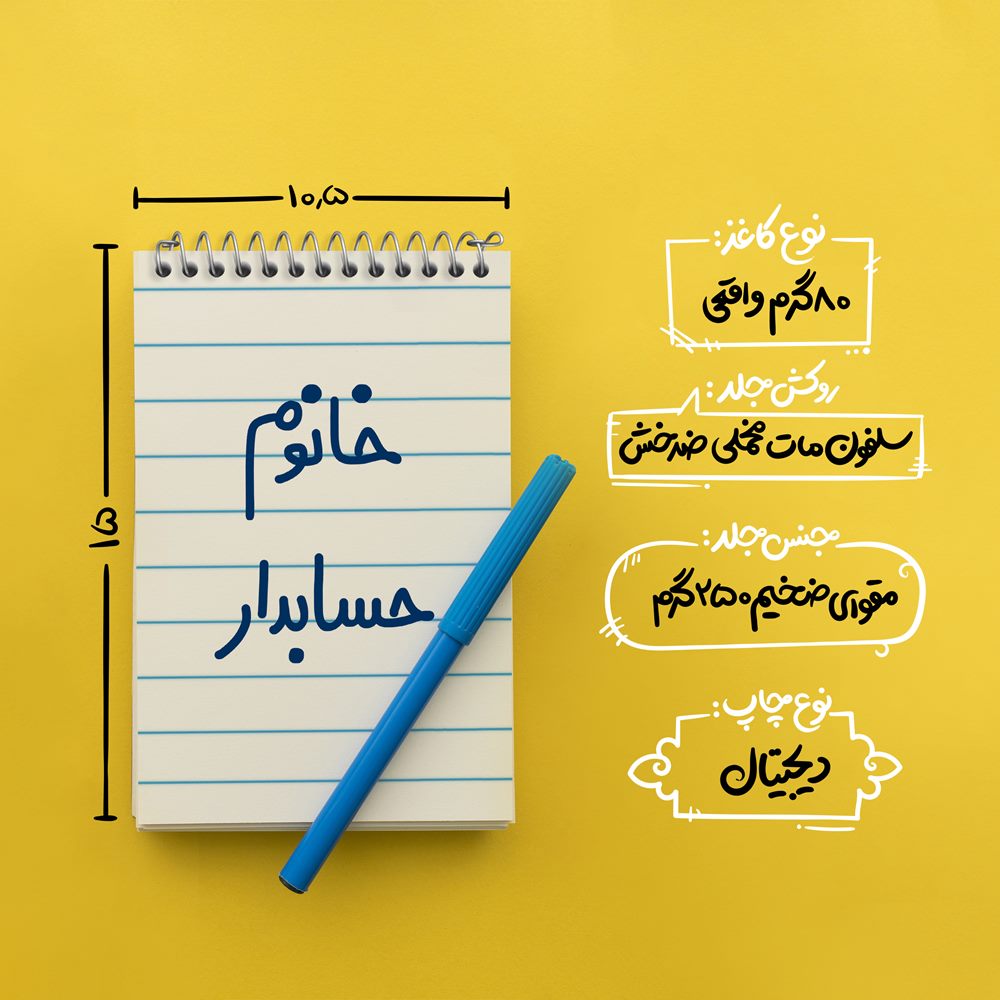 ۱۰٫۵
۱۵
خانوم
حسابدار
نوع کاغذ:
۸۰ گرم واقعی
روکش جلد:
سلفون مات مخملی ضدخش
جنس جلد:
مقوای ضخیم ۲۵۰ گرم
نوع چاپ:
دیجیتال